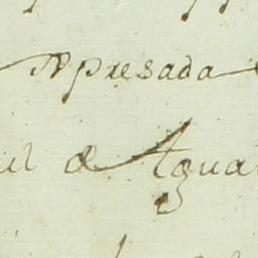 Apresada
de Agua